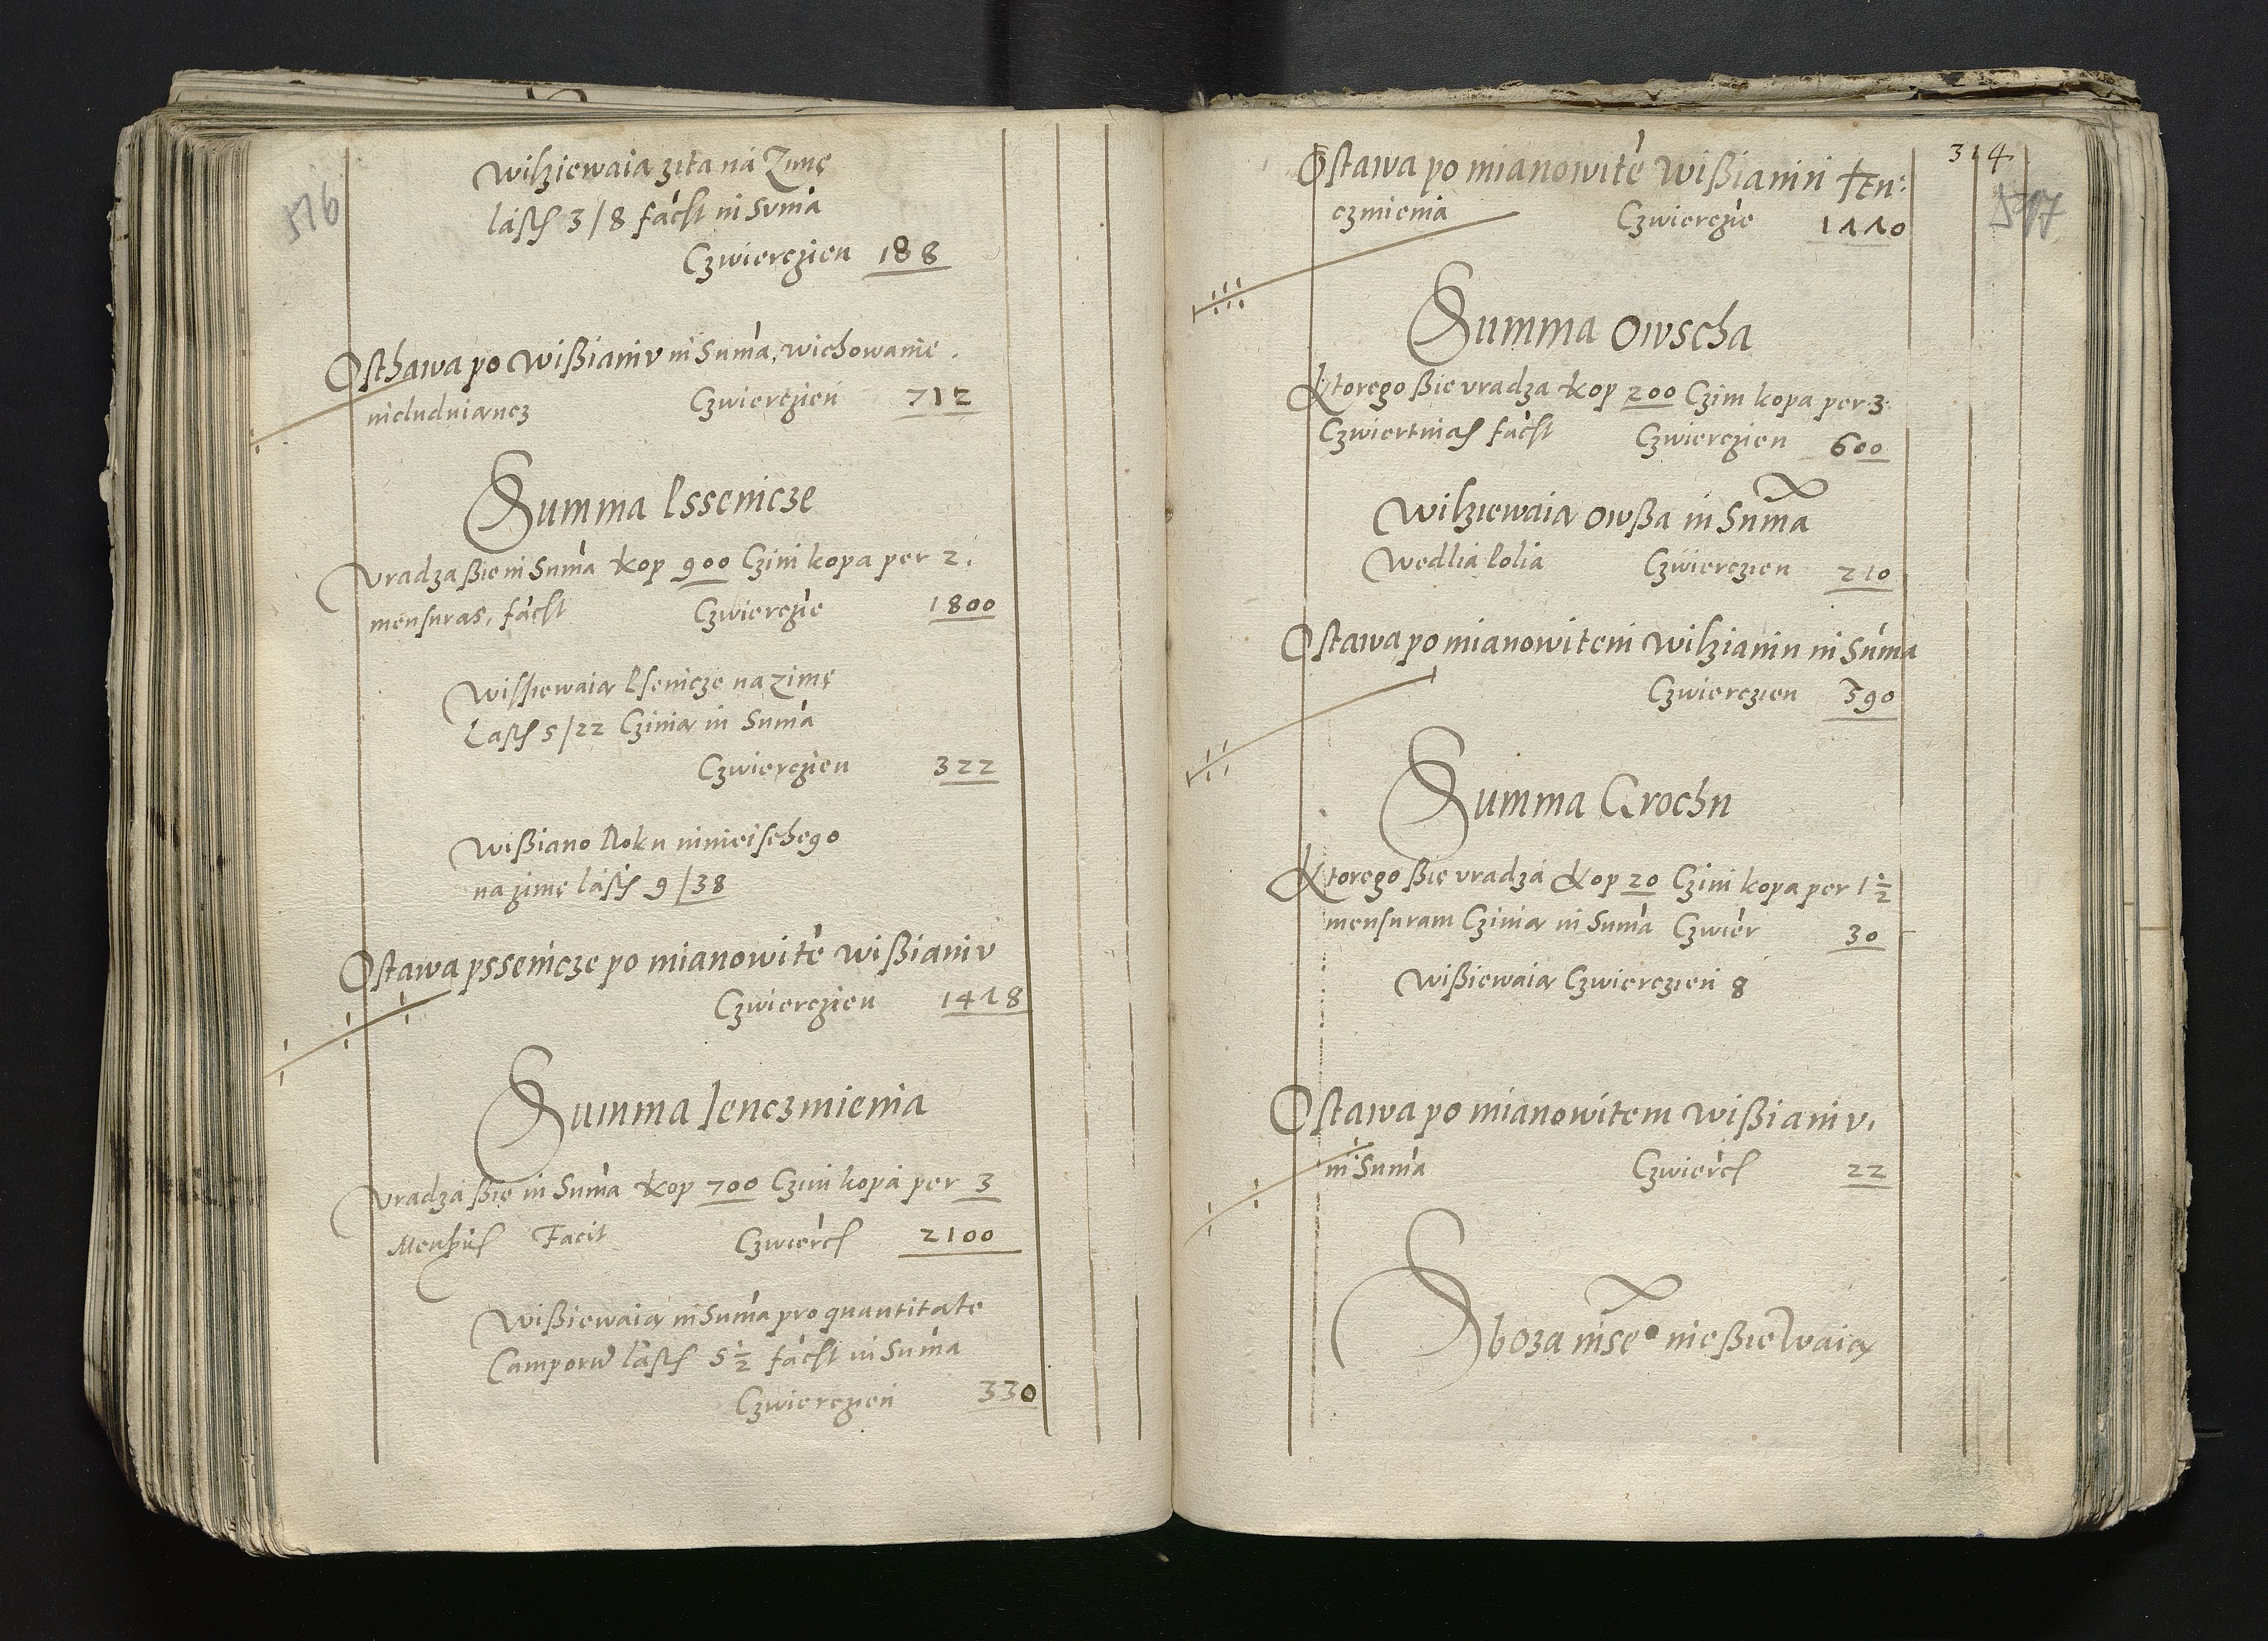 516
Wißiewaia zita na Zimę
lásth 3/8 fácit in Suma
Czwierczien 188
Osthawa po Wißianiv in Suma, wichowanie
nieludnianez
Czwierczien 712
Summa Pssenicze
Vradza ßie in Suma kop 900 Czini kopa per 2.
mensuras, fácit Czwierczie 1800
Wisiewaia Psenicze na zimę
Lasth 5/22 Czinia in Suma
Czwierczien 322
Wißiano Roku ninieischego
na zimę lásth 9/38
Ostawa pssenicze po mianowitè wißianiv
Czwierczien 1418
Summa Jenczmienia
Vradzá ßię in Suma kop 700 Czini kopá per 3
Facit Czwierth 2100
Wißiewaia in Suma pro quantitate
Camporū lásth 5½ fácit in Suma
Czwierczien 330
314
Ostawa po mianowitè Wißianiu Jen:
czmienia Czwierczie 1110
Summa Owscha
Ktorego ßie vradza kop 200 Czini kopa per 3.
Czwiertnias fácit Czwierczien 600
Wißiewaia Owßa in Suma
Wedlia Polia Czwierczien 210
Ostawa po mianowitem Wißianiu in Suma
Czwierczien 390
Summa Grochu
Ktorego ßię vradzá kop 20 Czini kopa per 1½
mensuram Czinia in Suma Czwier 30
Wißiewaia Czwierczien 8
Ostawa po mianowitem Wißianiv,
in Suma Czwierth 22
Zboza inse° nie ßiewaia